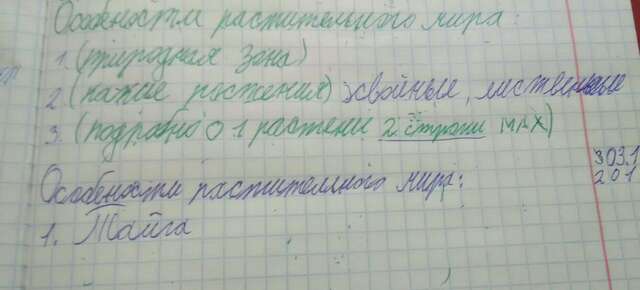 Особености растительного мира:
1. (природная зона)
2. (какие ростения) хвойные, лиственые
3. (подрабно о 1 растени 2 строки MAX)
303.1
201
Особености растителного мира:
1. Тайга